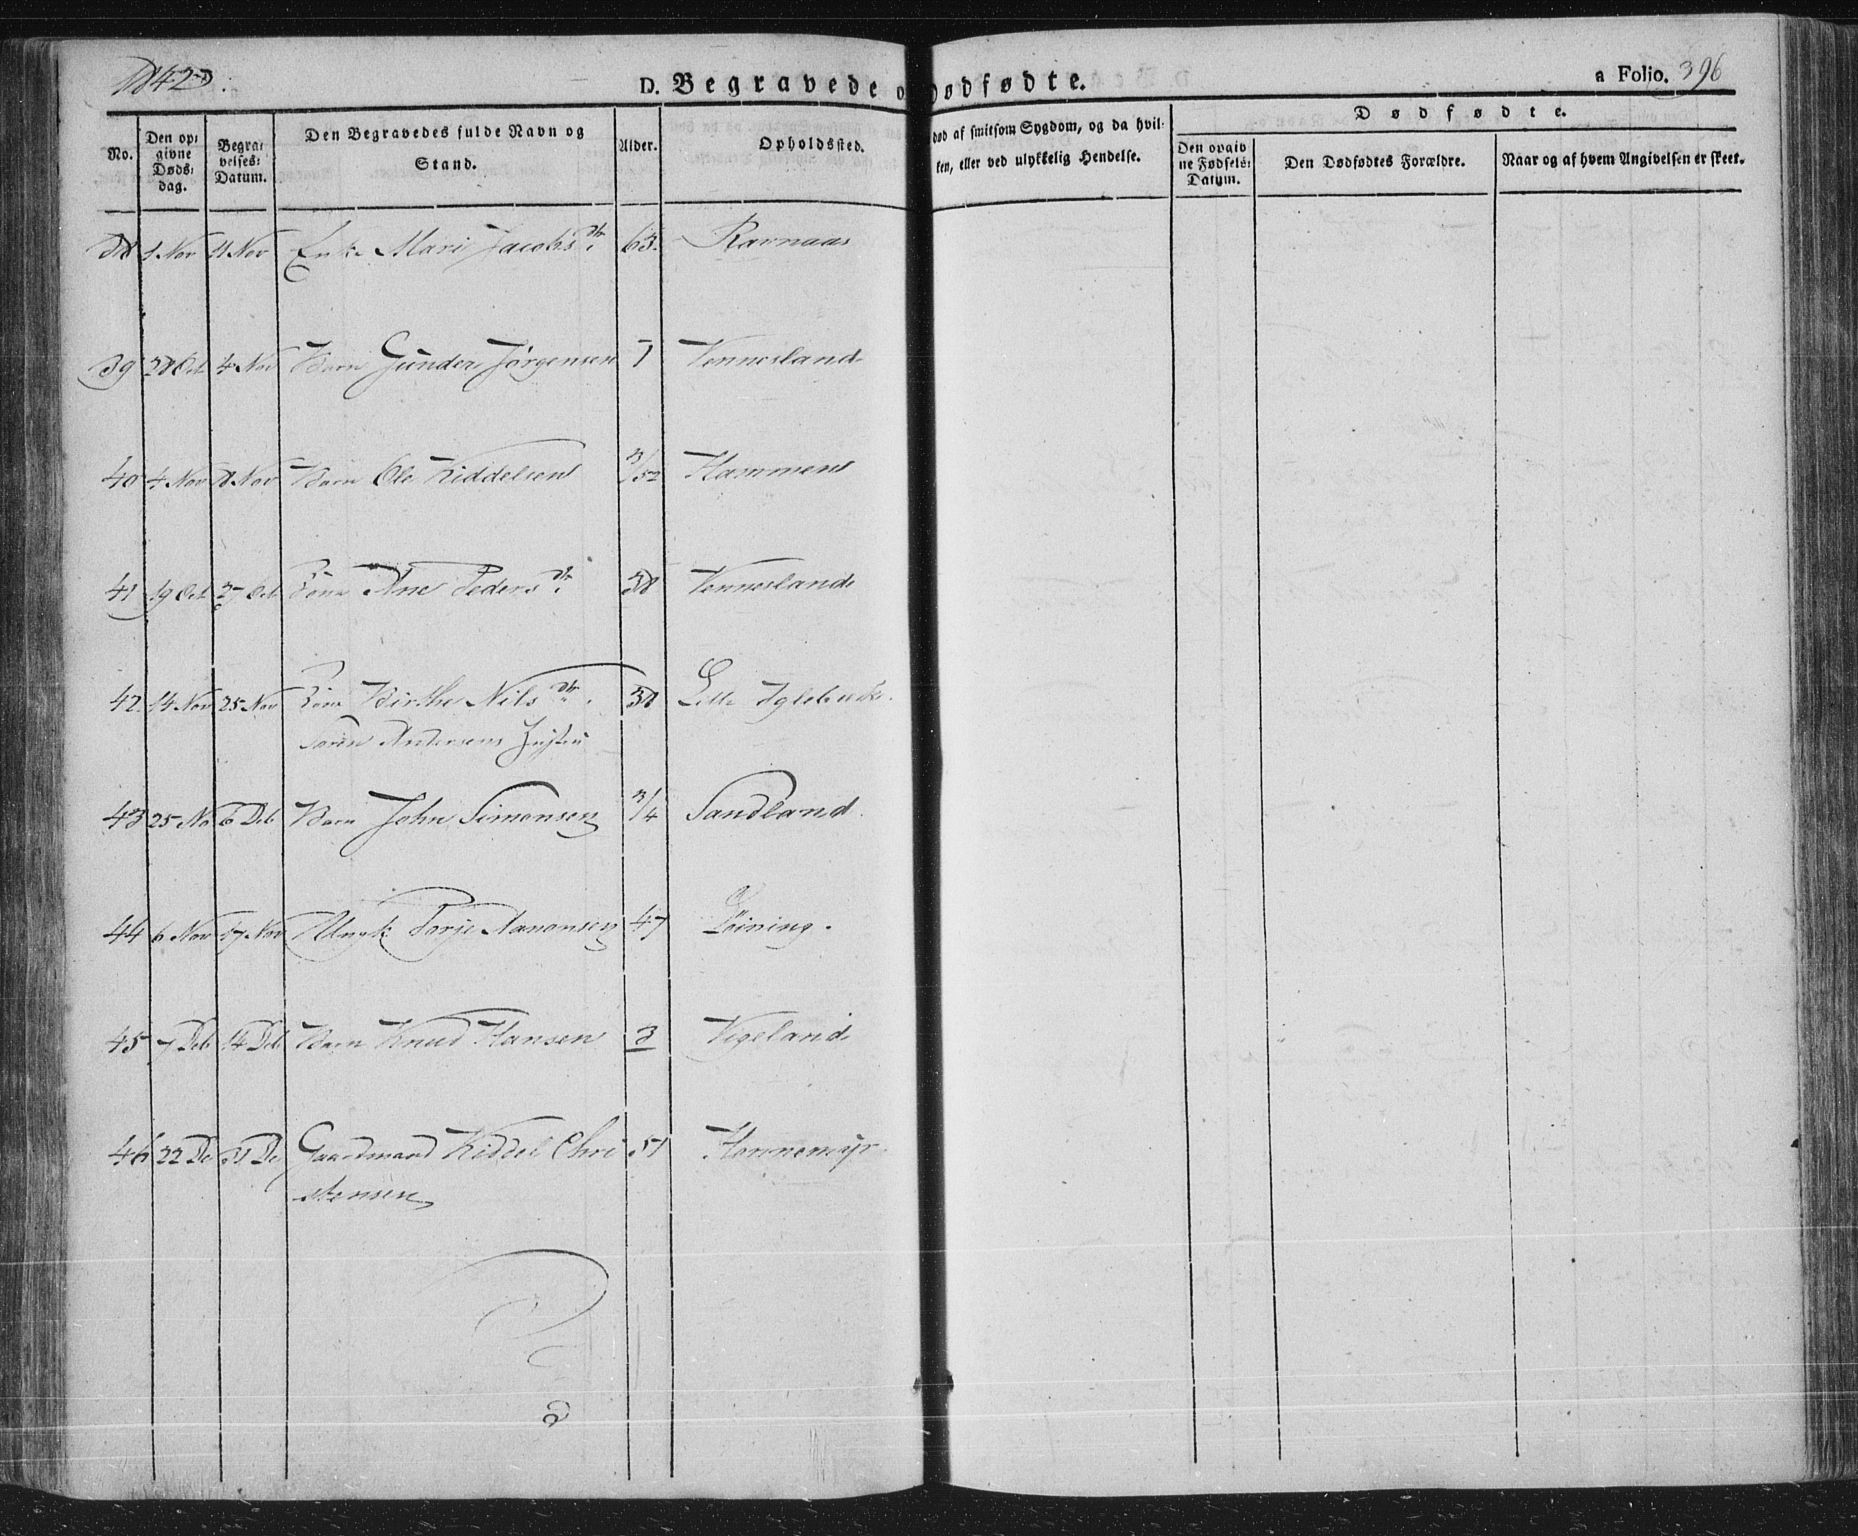 1842
D. Begravede o Dodfødte.
a Folio. 396
No.
Den op: givne Døds: dag.
Begra: velses: Datum.
Den Begravedes fulde Navn og Stand.
Alder.
Opholdssted.
død af smitsom Sygdom, og da hvil: ken, eller ved ulykkelig Hendelse.
Dødfødte.
Den opgiv ne Fødsels: Datum.
Den Dødfødtes Forældre.
Naar og af hvem Angivelsen er skeet.
38 4 Nov 11 Nov Enke Mari Jacobs dtr 63 Ravnaas
39 28 Oct 4 Nov Barn Gunder Jørgensen 7 Vennesland
40 4 Nov 8 Nov Barn Ole Kiddelsen 3/52 Hammen
41 19 Oct 27 Oct Kone Ane Peders dtr 38 Vennesland
42 14 Nov 25 Nov Kone Birthe Nils dtr 38 Lille Iglebæk
Søren Andersens Hustru
43 25 No 6 Deb Barn John Simonsen 3/4 Sandland
44 6 Nov 17 Nov Ungk Torje Aanonsen 47 Løining
45 7 Deb 14 Deb Barn Knud Hansen 3 Vigeland
46 22 De 31 De Gaardmand Kiddel Chri 51 Honnemyr
stensen